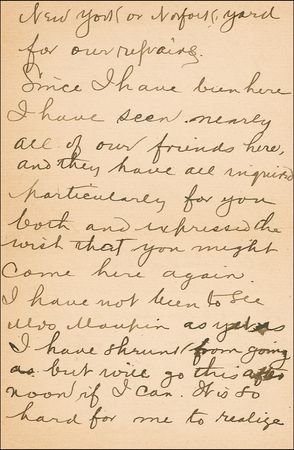 New York or Norfolk, yard
for our repairing.
Since I have been here
I have seen nearly
all of our friends here,
and they have all inquired
particularly for you
both and expressed the
wish that you might
come here again.
I have not been to see
Mrs Maupin as yet as
I have shrunk from going
but will go this after
noon if I can. It is so
hard for me to realize